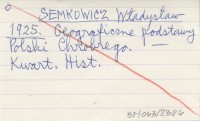 SEMKOWICZ Władysław
1925. Geograficzne podstawy
Polski Chrobrego. —
Kwart. Hist.